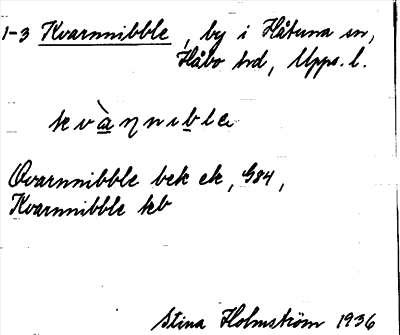 1-3 Kvarnnibble, by i Håtuna sn,
Håbo hd, Upps. l.
kvàṇnible
Qvarnnibble bek ek, G84,
Kvarnnibble kb
Stina Holmström 1936